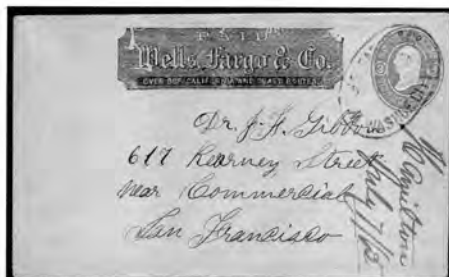 PAID
Wells, Fargo & Co.
OVER OUR CALIFORNIA AND COAST ROUTES.
Dr. J. H. Gibbons
617 Kearney Street
near Commercial
San Francisco
WASHOE
Hamilton
July 7/62